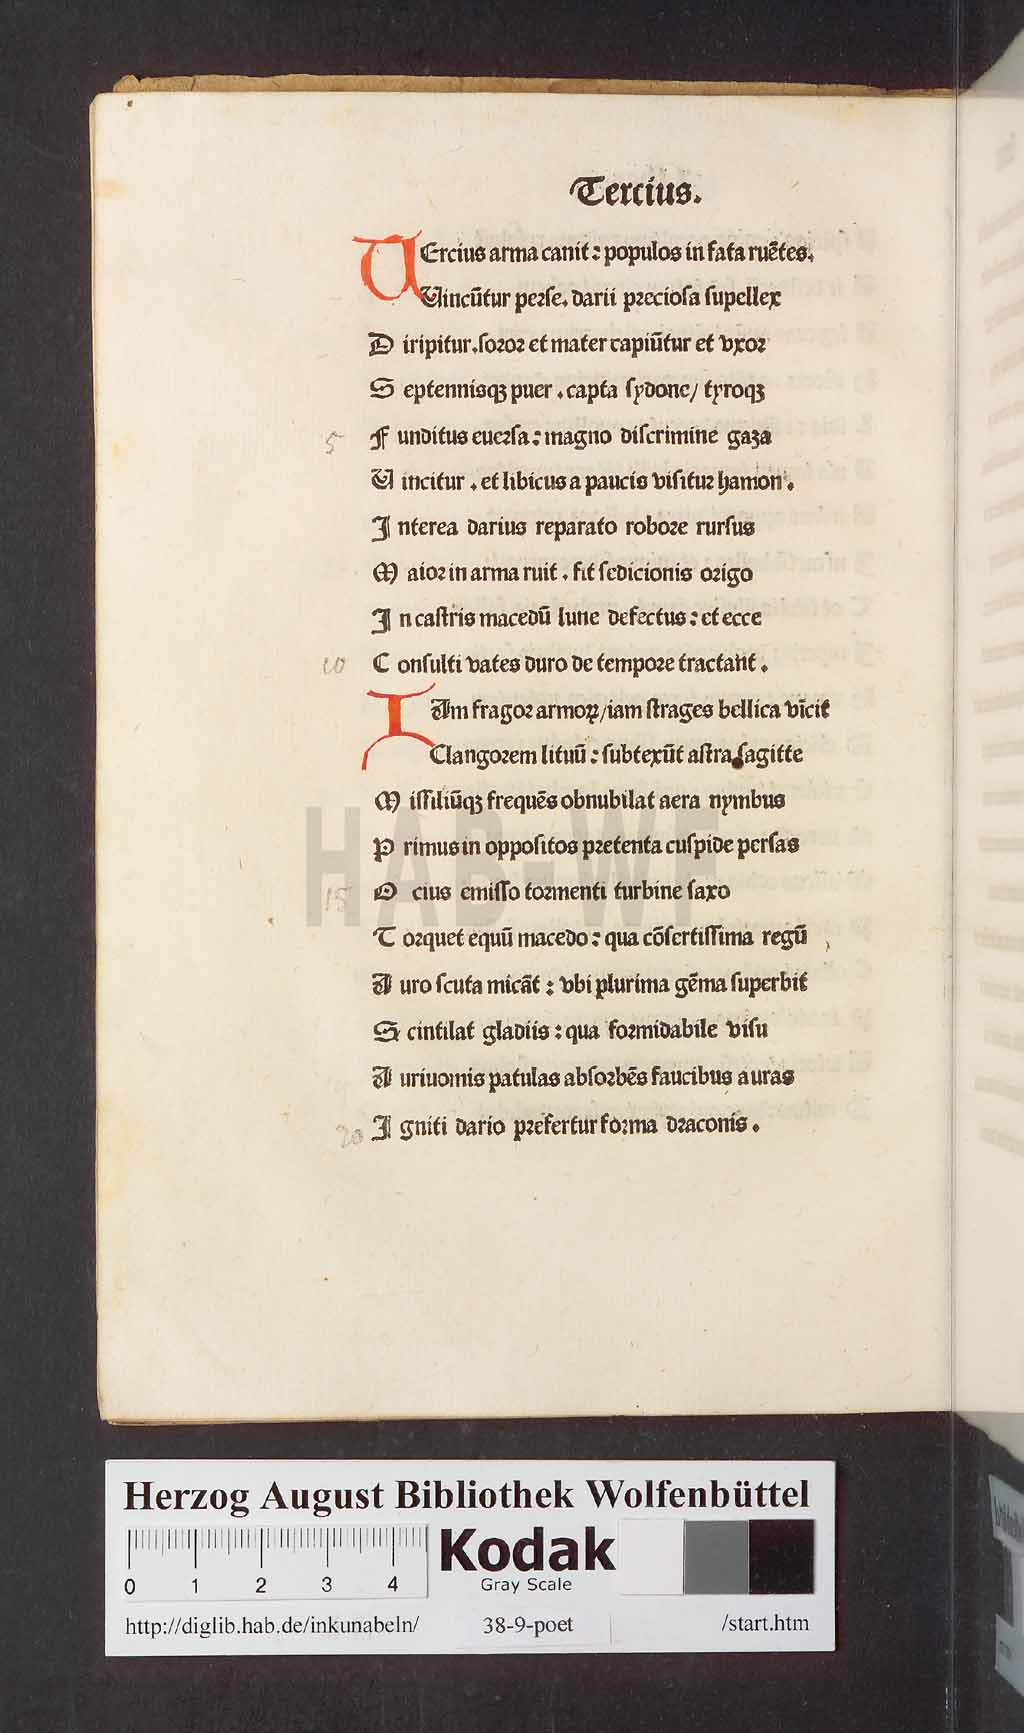 Tercius.
TErcius arma canit: populos in fata ruētes.
Uincūtur perse. darii preciosa supellex
Diripitur. soror et mater capiūtur et vxor
Septennisqꝫ puer. capta sydone/ tyroqꝫ
5 Funditus euersa: magno discrimine gaza
Uincitur. et libicus a paucis visitur hamon.
Interea darius reparato robore rursus
Maior in arma ruit. fit sedicionis origo
In castris macedū lune defectus: et ecce
10 Consulti vates duro de tempore tractant.
IAm fragor armoꝝ/ iam strages bellica vīcit
Clangorem lituū: subtexūt astra sagitte
Missiliūqꝫ frequēs obnubilat aera nymbus
Primus in oppositos pretenta cuspide persas
15 Ocius emisso tormenti turbine saxo
Torquet equū macedo: qua cōsertissima regū
Auro scuta micāt: vbi plurima gēma superbit
Scintilat gladiis: qua formidabile visu
Auriuomis patulas absorbēs faucibus auras
20 Igniti dario prefertur forma draconis.
HAB-WF
Herzog August Bibliothek Wolfenbüttel
0 1 2 3 4
Kodak
Gray Scale
http://diglib.hab.de/inkunabeln/ 38-9-poet /start.htm